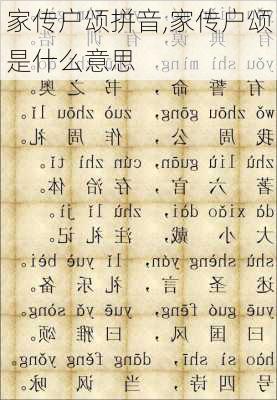 家传户颂拼音,家传户颂
是什么意思
有誓命，书之奥。
wǒ zhōu gōng, zuò zhōu lǐ.
我周公，作周礼。
zhù liù guān, cún zhì tǐ.
著六官，存治体。
dà xiǎo dài, zhù lǐ jì.
大小戴，注礼记。
shù shèng yán, lǐ yuè bèi.
述圣言，礼乐备。
yuē guó fēng, yuē yǎ sòng.
曰国风，曰雅颂。
hào sì shī, dāng fěng yǒng.
号四诗，当讽咏。